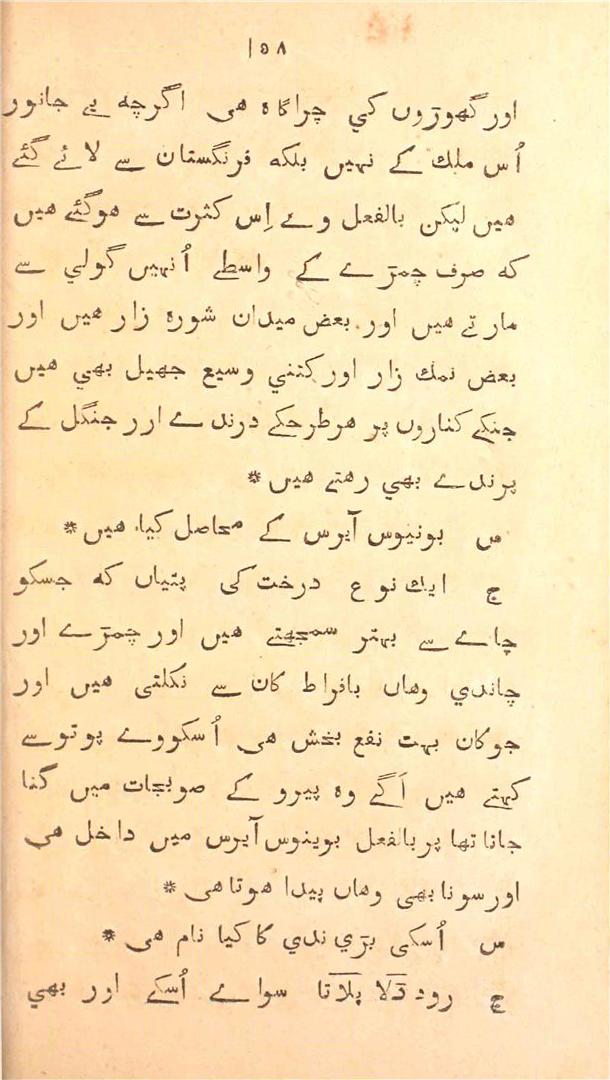 ۱۵۸
اور گھوڑوں کي چراگاہ هی اگرچه يے جانور
اُس ملك کے نہیں بلکه فرنگستان سے لائے گئے
هیں لیکن بالفعل وے اِس کثرت سے هوگئے هیں
که صرف چمڑے کے واسطے اُنہیں گولي سے
مارتے هیں اور بعض میدان شورہ زار هیں اور
بعض نمك زار اور کتني وسیع جهیل بهي هیں
جنکے کناروں پر هرطرحکے درندے ارر جنگل کے
پرندے بهي رهتے هیں *
س بونیوس آیرس کے محاصل کیا هیں *
ج ایك نوع درخت کی پتیاں که جسکو
چاے سے بہتر سمجهتے هیں اور چمڑے اور
چاندي وهاں بافراط کان سے نکلتی هیں اور
جو کان بہت نفع بخش هی اُسکو وے پوتوسے
کہتے هیں آگے وہ پیرو کے صوبجات میں گنا
جاتا تها پر بالفعل بوینوس آیرس میں داخل هی
اور سونا بهی وهاں پیدا هوتا هی *
س اُسکی بڑي ندي کا کیا نام هی *
ج رود دَلا پلاتا سواے اُسکے اور بهي